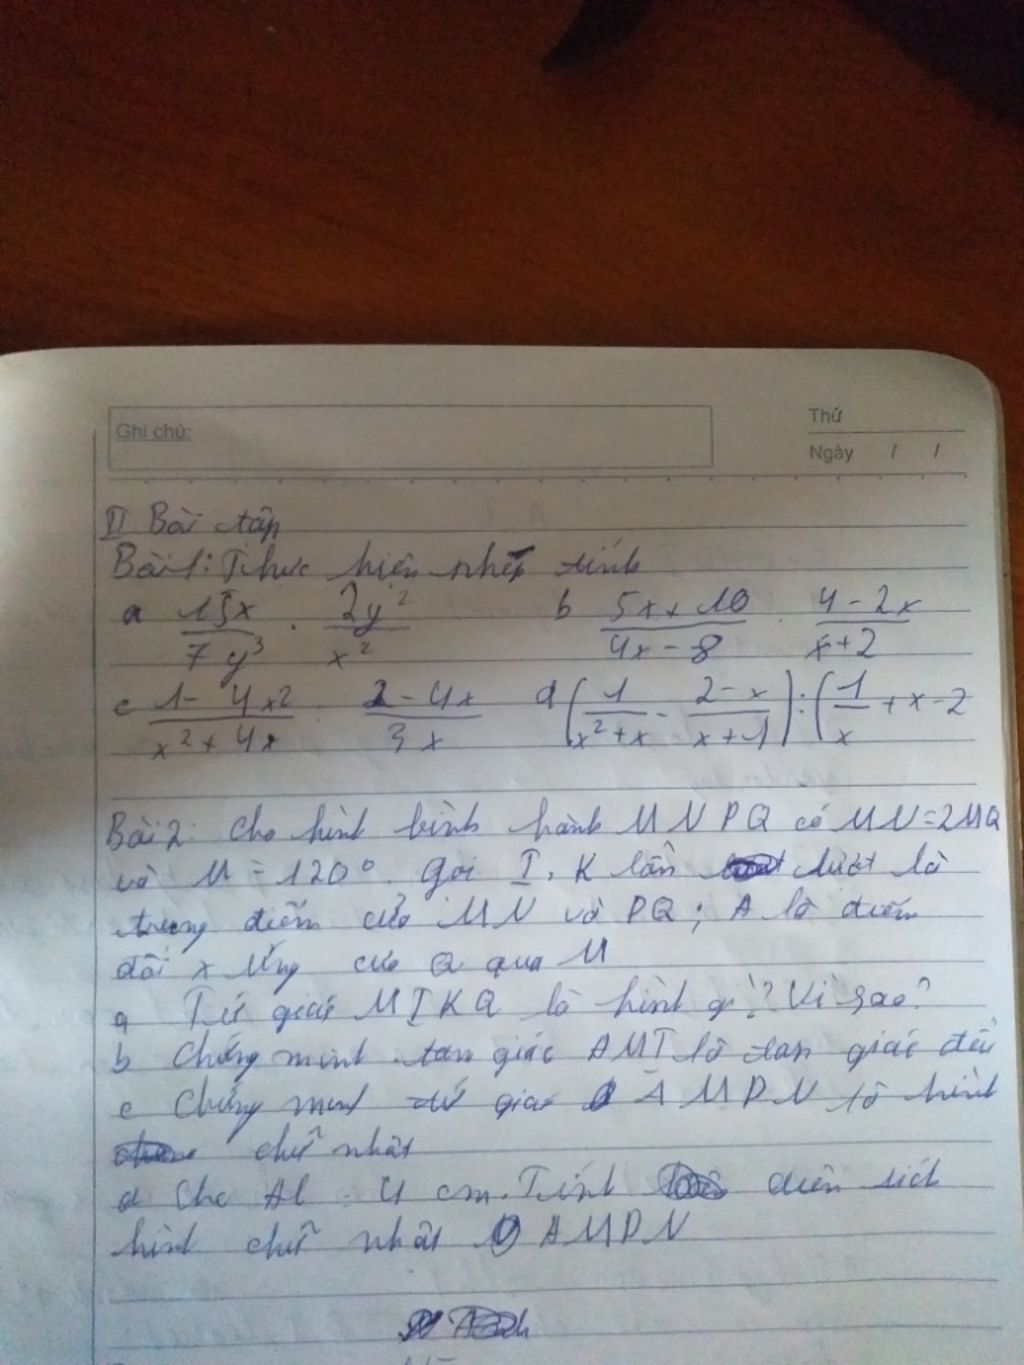 Ghi chú:
Thứ
Ngày / /
II Bài tập
Bài 1: Thực hiện phép tính
a 15x/7y³ . 2y²/x² b 5x+10/4x-8 . 4-2x/x+2
c 1-4x²/x²+4x 2-4x/3x d (1/x²+x - 2-x/x+1) : (1/x + x-2
Bài 2: Cho hình bình hành MNPQ có MN=2MQ
và M = 120°. Gọi I, K lần lượt là
trung điểm của MN và PQ; A là điểm
đối xứng của Q qua M
a Tứ giác MIKQ là hình gì? Vì sao?
b Chứng minh tam giác AMI là tam giác đều
c Chứng minh tứ giác AMPN là hình
chữ nhật
d Cho AI = 4 cm. Tính diện tích
hình chữ nhật AMPN